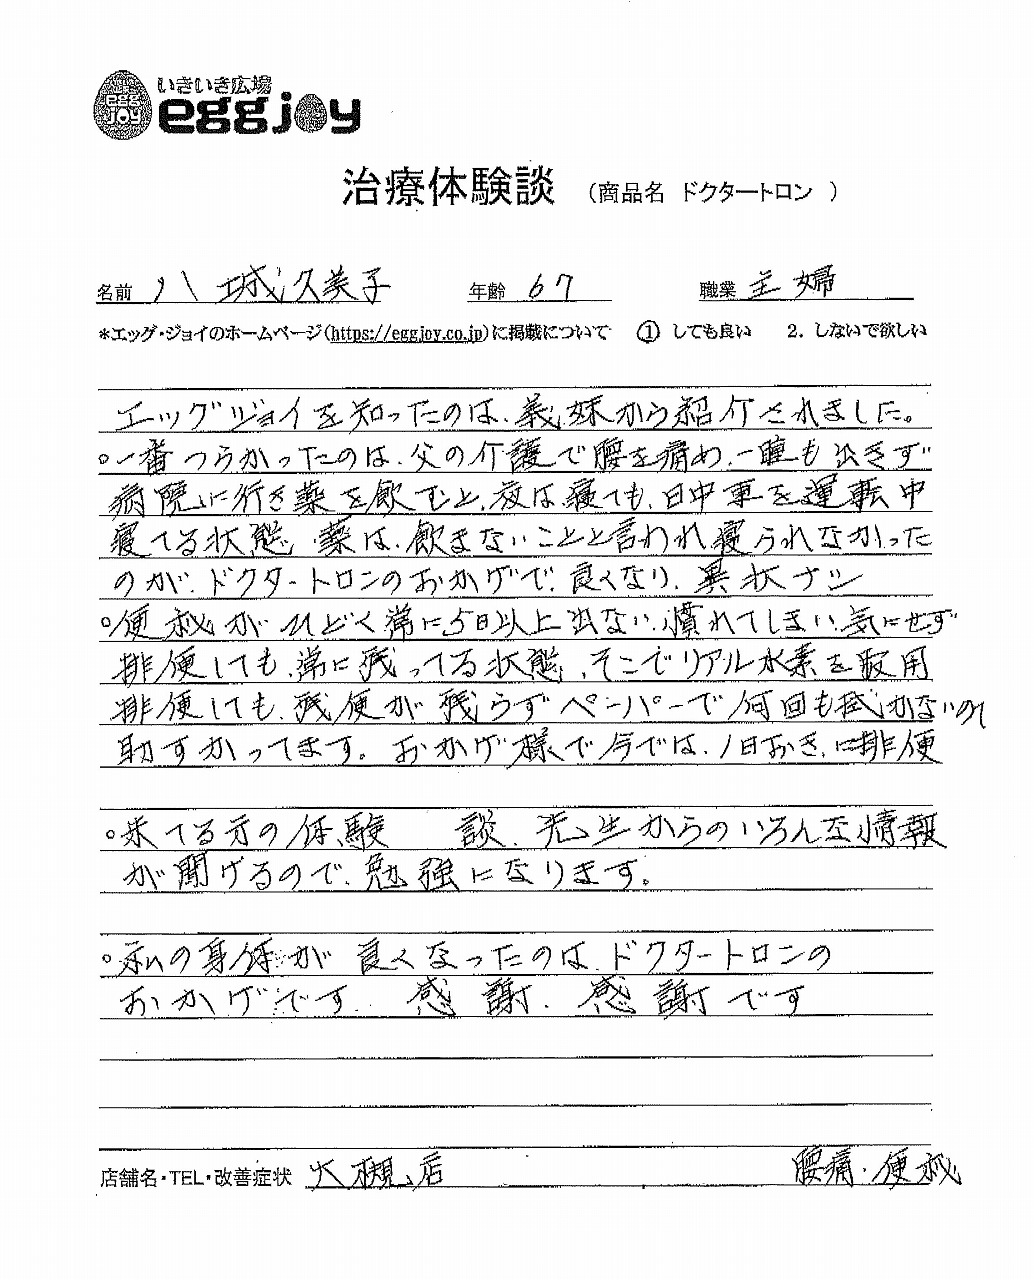 いきいき広場
egg joy
eggjoy
治療体験談 (商品名 ドクタートロン )
名前 八城久美子 年齢 67 職業 主婦
*エッグ・ジョイのホームページ(https://eggjoy.co.jp)に掲載について ① しても良い 2. しないで欲しい
エッグジョイを知ったのは、義妹から紹介されました。
○一番つらかったのは、父の介護で腰を痛め、一睡も出きず
病院に行き薬を飲むと、夜は、寝ても、日中車を運転中
寝てる状態、薬は、飲まないことと言われ寝られなかった
のが、ドクタートロンのおかげで、良くなり、異状ナシ
○便秘がひどく常に5日以上出ない、慣れてしまい、気にせず
排便しても、常に残ってる状態、そこでリアル水素を服用
排便しても、残便が残らずペーパーで何回も拭かないので
助すかってます。おかげ様で今では、1日おき、に排便
○来てる方の体験 談、先生からのいろんな情報
が聞けるので、勉強になります。
○私の身体が良くなったのは、ドクタートロンの
おかげです、感謝、感謝です
店舗名・TEL・改善症状 大槻店 腰痛・便秘